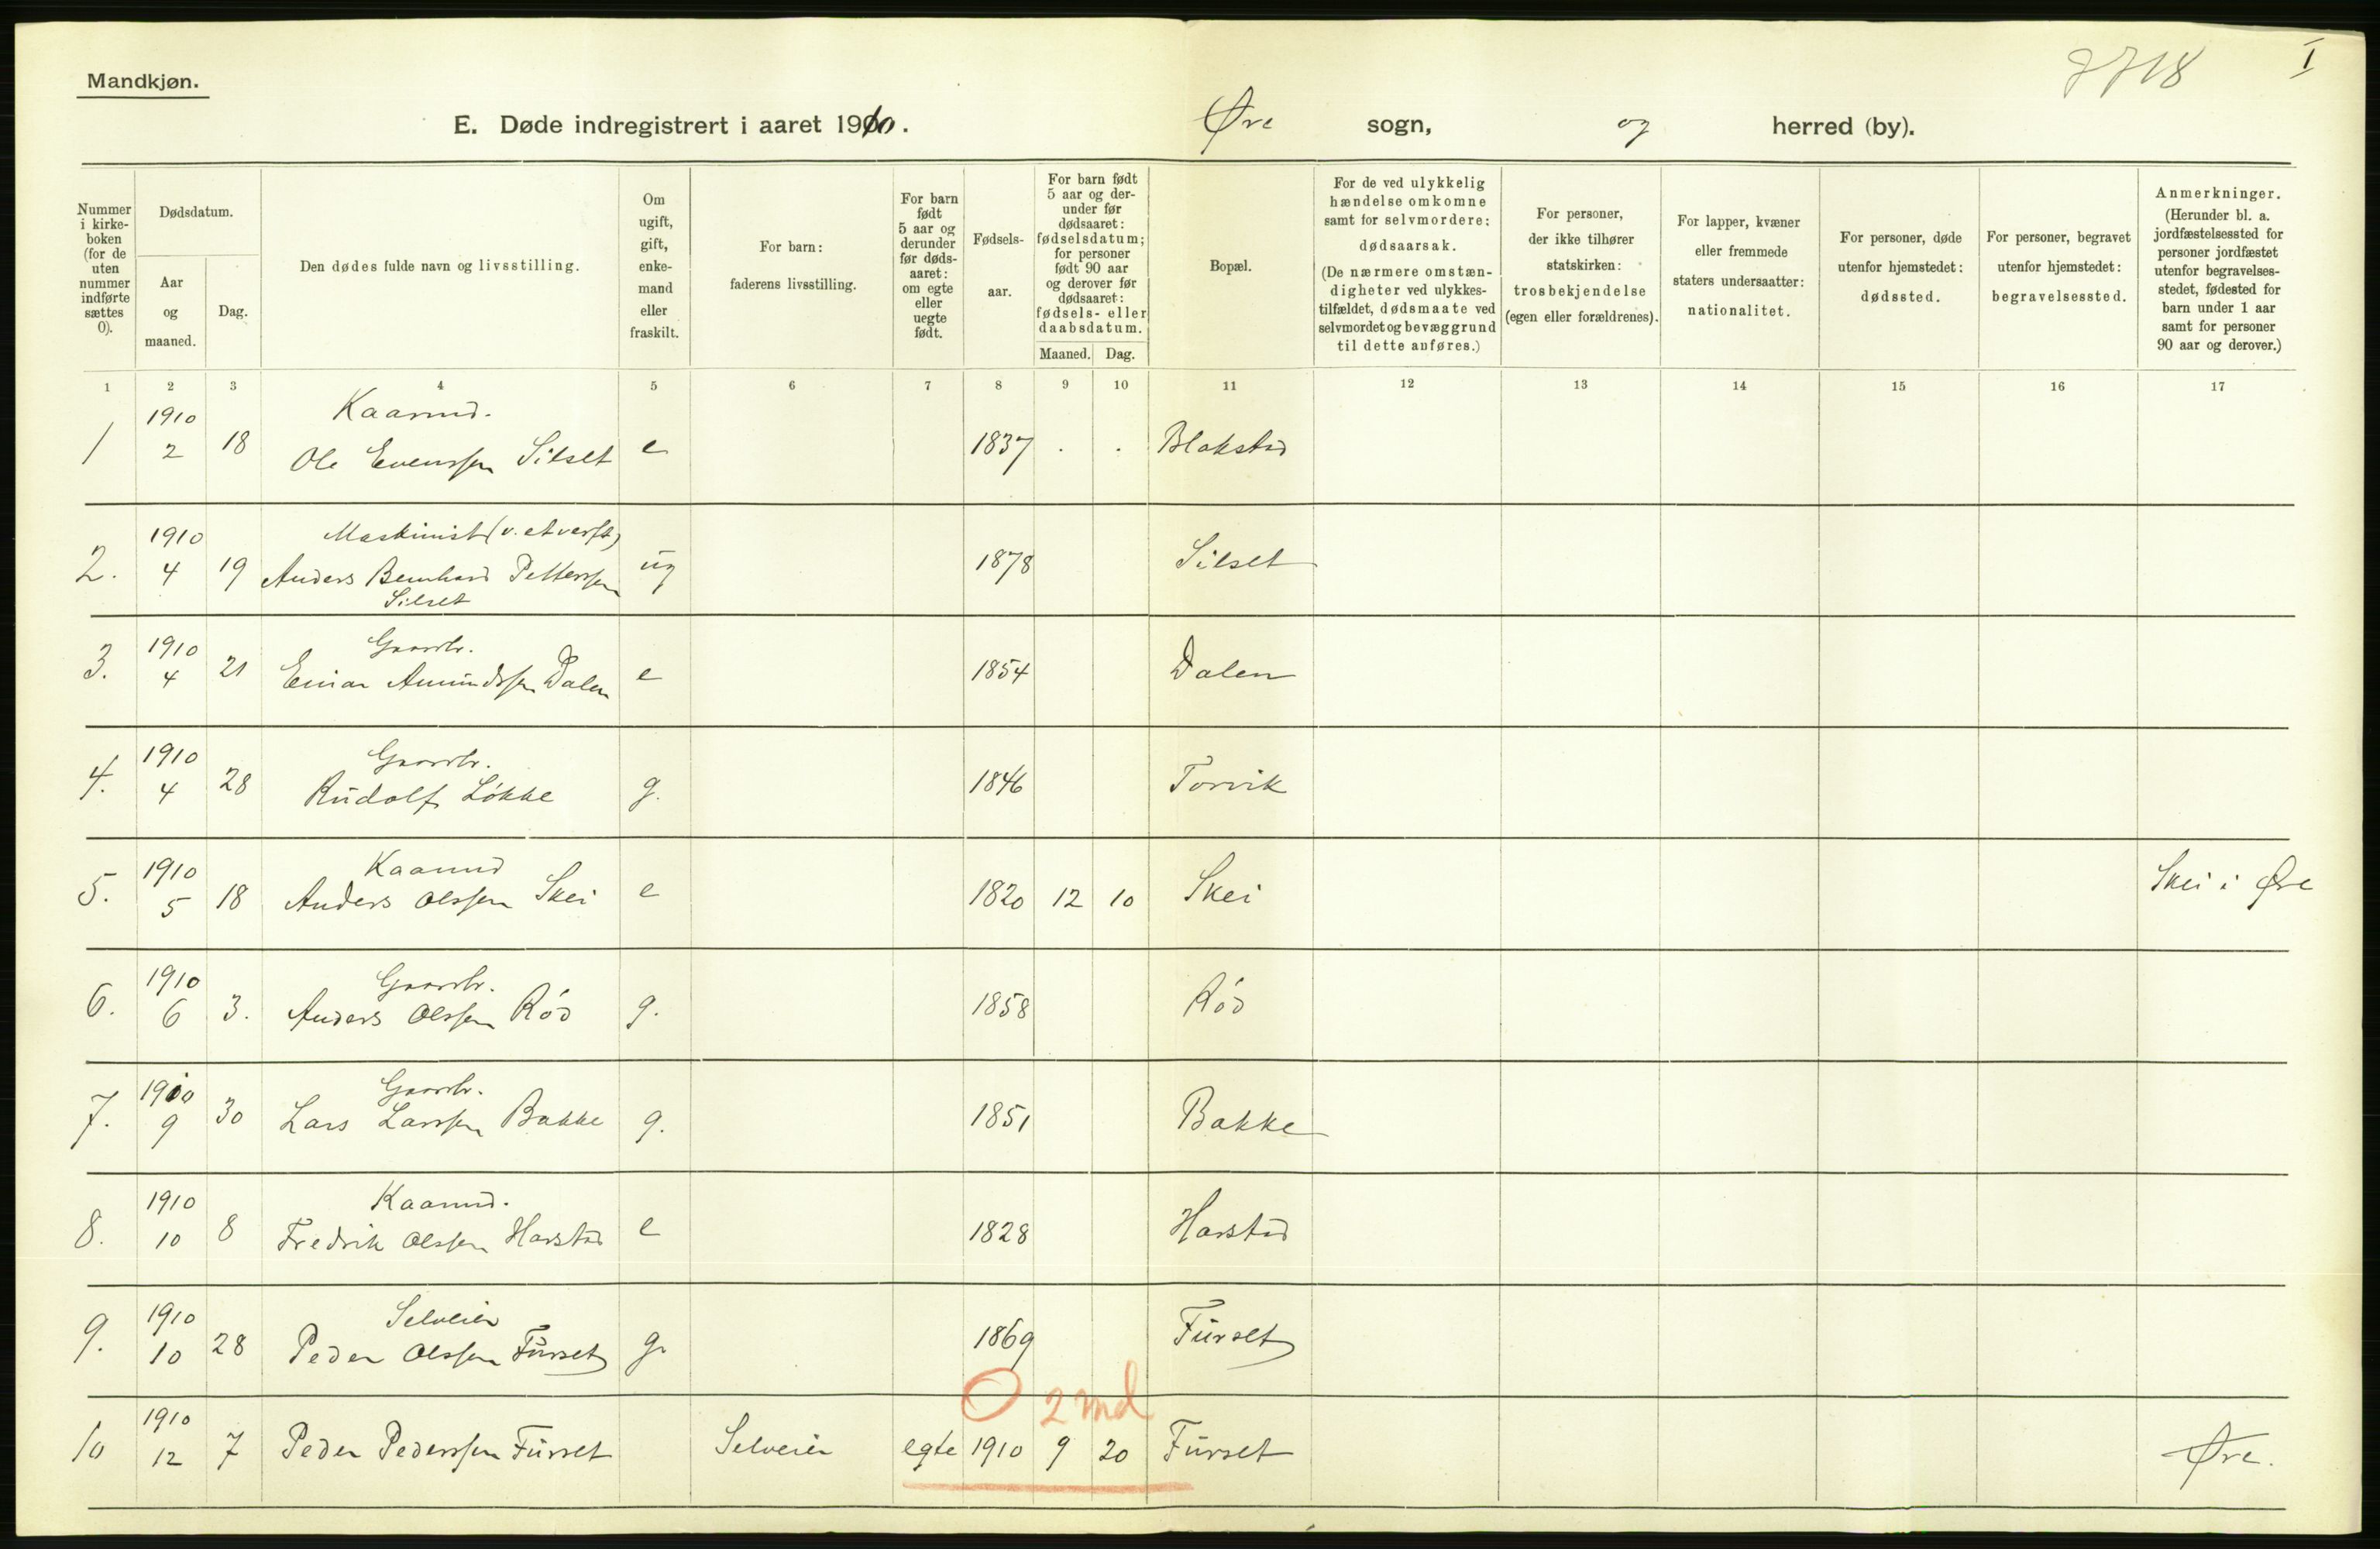 Mandkjøn.
7718
I
E. Døde indregistrert i aaret 1910. Øre sogn, og herred (by).
Nummer i kirke-boken (for de uten nummer indførte sættes 0).
Dødsdatum.
Aar og maaned.
Dag.
Den dødes fulde navn og livsstilling.
Om ugift, gift, enke-mand eller fraskilt.
For barn: faderens livsstilling.
For barn født 5 aar og derunder før døds-aaret: om egte eller uegte født.
Fødsels-aar.
For barn født 5 aar og der-under før dødsaaret: fødselsdatum; for personer født 90 aar og derover før dødsaaret: fødsels- eller daabsdatum.
Maaned. Dag.
Bopæl.
For de ved ulykkelig hændelse omkomne samt for selvmordere: dødsaarsak. (De nærmere omstæn-digheter ved ulykkes-tilfældet, dødsmaate ved selvmordet og bevæggrund til dette anføres.)
For personer, der ikke tilhører statskirken: trosbekjendelse (egen eller forældrenes).
For lapper, kvæner eller fremmede staters undersaatter: nationalitet.
For personer, døde utenfor hjemstedet: dødssted.
For personer, begravet utenfor hjemstedet: begravelsessted.
Anmerkninger. (Herunder bl. a. jordfæstelsessted for personer jordfæstet utenfor begravelses-stedet, fødested for barn under 1 aar samt for personer 90 aar og derover.)
1 2 3 4 5 6 7 8 9 10 11 12 13 14 15 16 17
1910 Kaarmd.
1 2 18 Ole Evenssen Silset e 1837 . . Blakstad
1910 Maskinist (v. et verkst)
2. 4 19 Anders Bernhard Pettersen ug 1878 Silset
Silset
1910 Gaardbr.
3. 4 21 Einar Amundssen Dalen e 1854 Dalen
1910 Gaardbr.
4. 4 28 Rudolf Løkke g. 1846 Torvik
1910 Kaarmd
5. 5 18 Anders Olssen Skei e 1820 12 10 Skei Skei i Øre
1910 Gaardbr.
6. 6 3. Anders Olssen Rød g. 1858 Rød
1910 Gaardbr.
7. 9 30 Lars Larssen Bakke g. 1851 Bakke
1910 Kaarmd.
8. 10 8 Fredrik Olssen Harstad e 1828 Harstad
1910 Selveier
9. 10 28 Peder Olssen Furset g. 1869 Furset
0 2 md
1910
10 12 7 Peder Pederssen Furset Selveier egte 1910 9 20 Furset Øre.